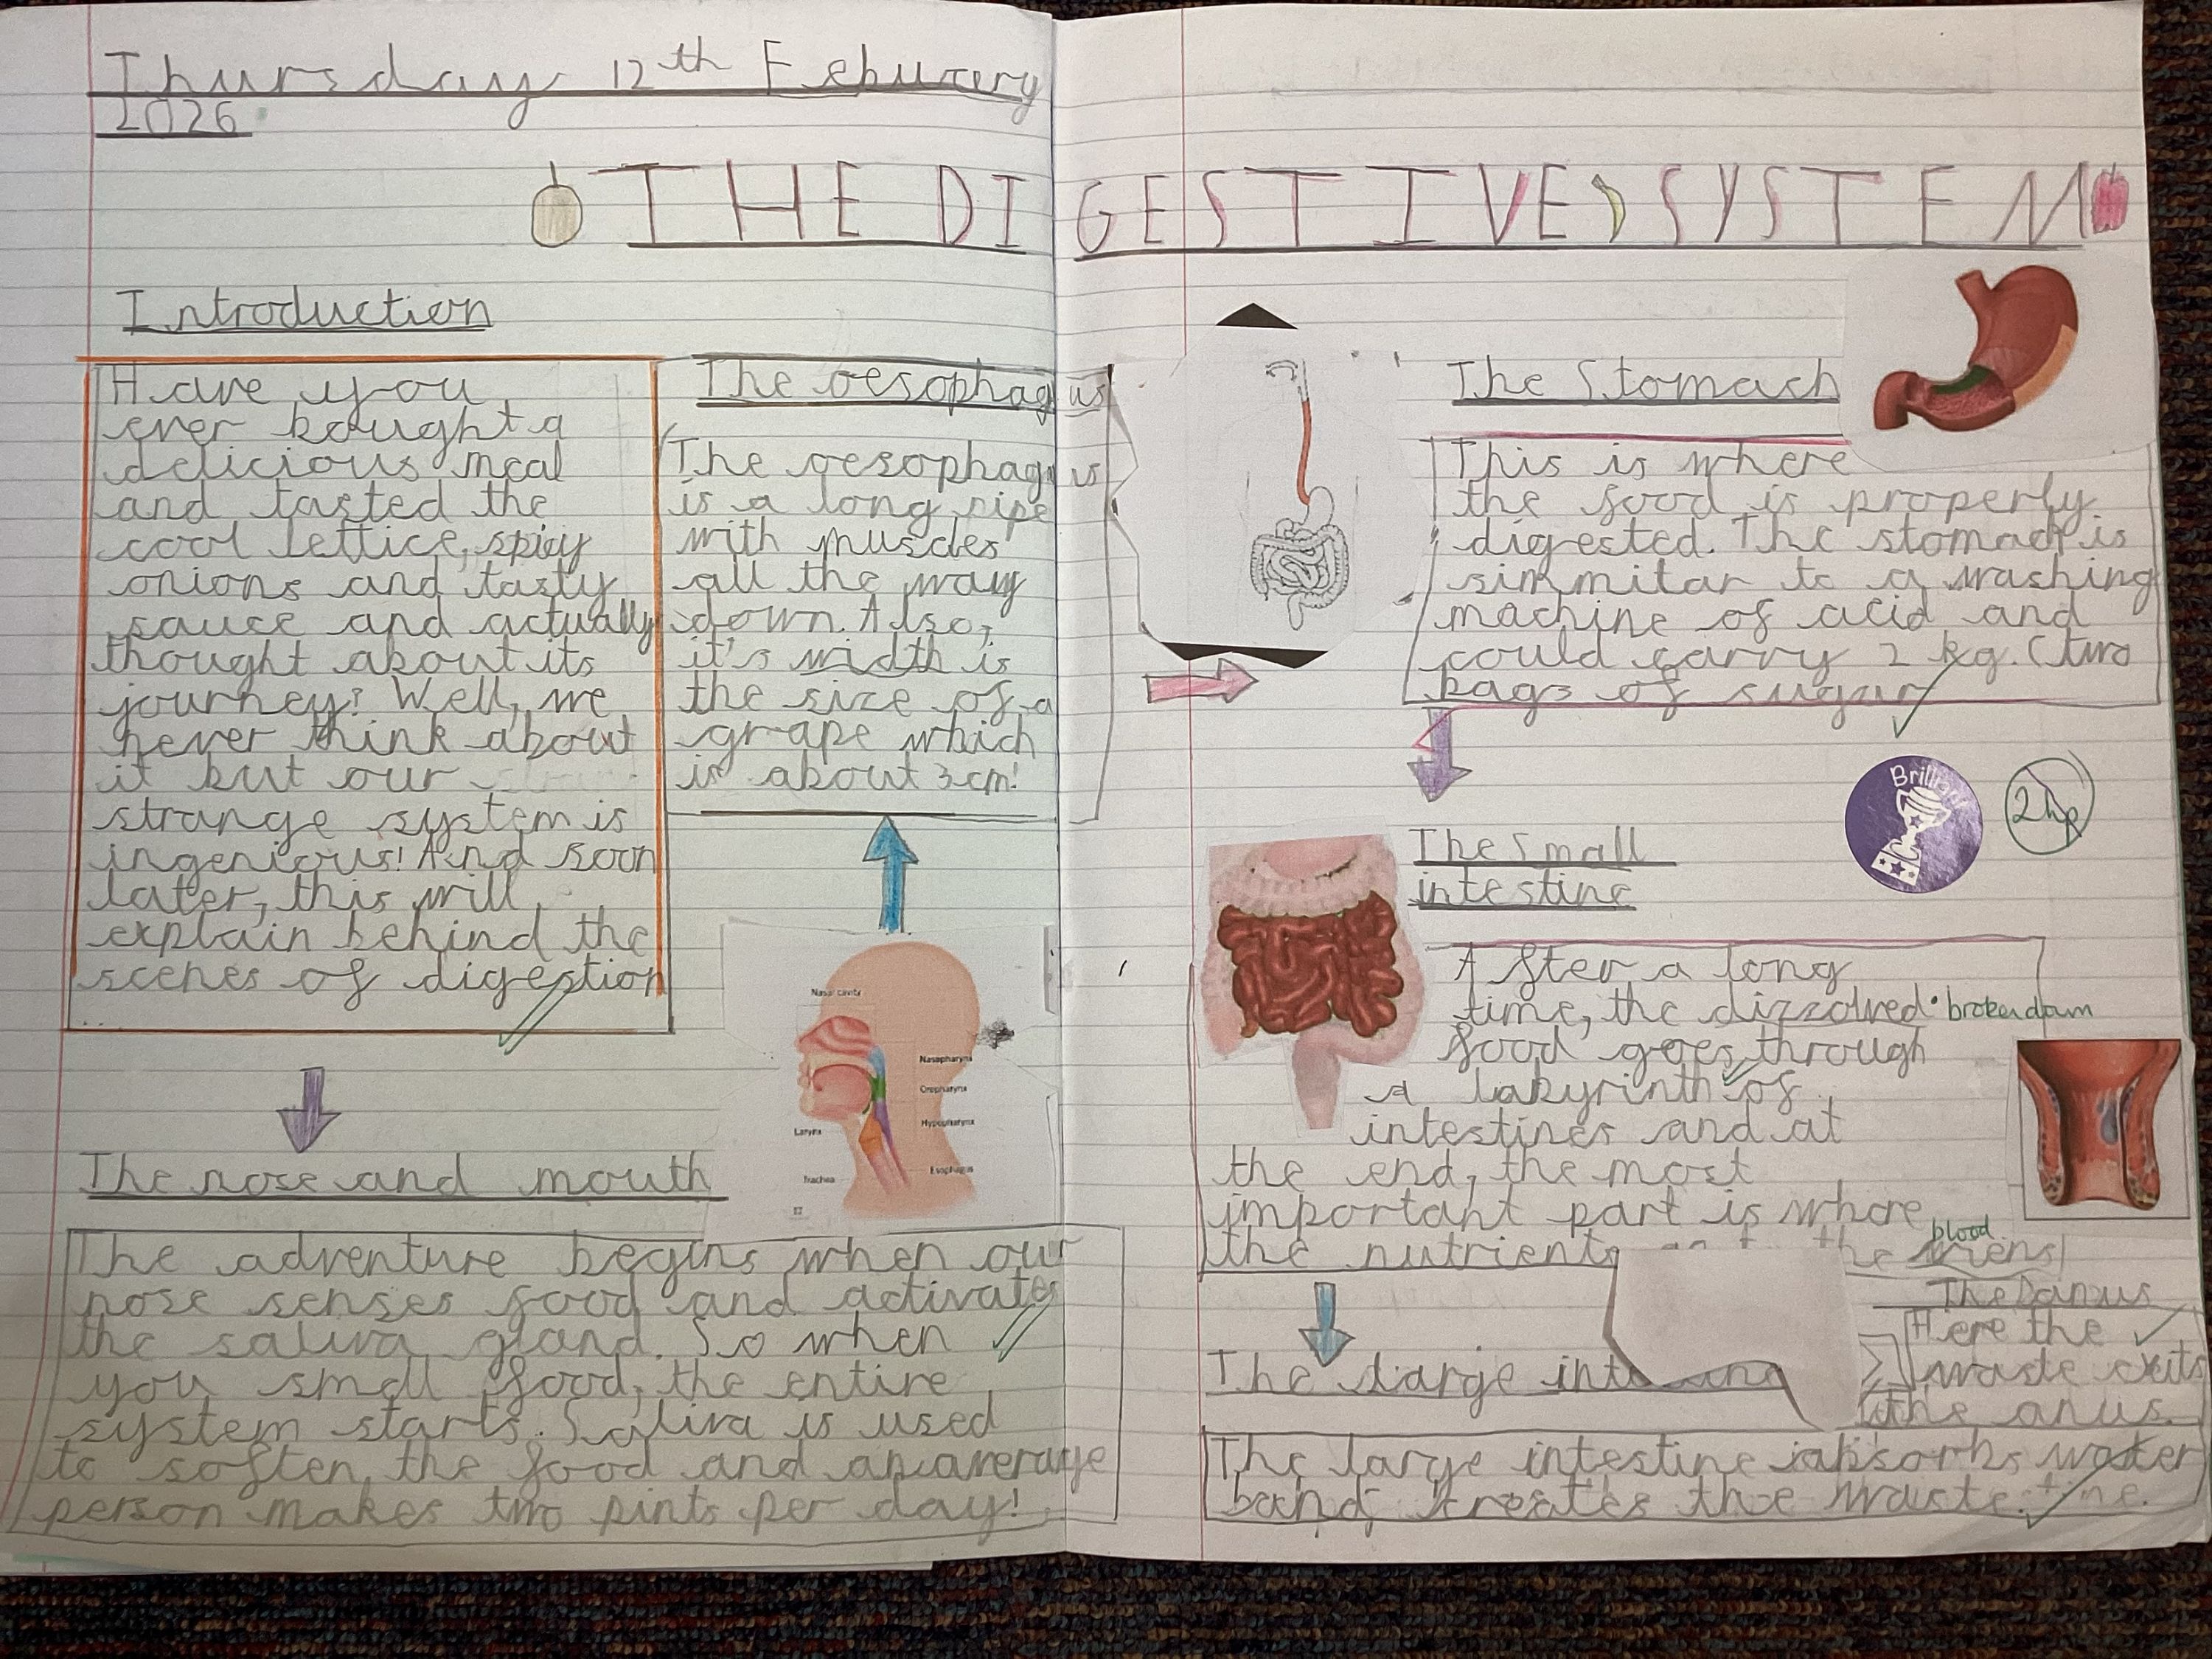 Thursday 12th Feburary
2026
THE DIGESTIVE SYSTEM
Introduction
Have you
ever bought a
delicious meal
and tasted the
cool lettice, spicy
onions and tasty
sauce and actually
thought about its
journey? Well, we
never think about
it but our
strange system is
ingenious! And soon
later, this will
explain behind the
scenes of digestion
The nose and mouth
The adventure begins when our
nose senses food and activates
the saliva gland. So when
you smell food, the entire
system starts. Saliva is used
to soften the food and an average
person makes two pints per day!
Nasal cavity
Nasopharynx
Oropharynx
Hypopharynx
Larynx
Esophagus
Trachea
The oesophagus
The oesophagus
is a long pipe
with muscles
all the way
down. Also,
it's width is
the size of a
grape which
is about 3cm!
The Stomach
This is where
the food is properly
digested. The stomach is
simmilar to a washing
machine of acid and
could carry 2 kg. (two
bags of sugar
Brilliant
2hp
The Small
intestine
After a long
time, the dizzolved • broken down
food goes through
a labyrinth of
intestines and at
the end, the most
important part is where
blood
the nutrients the
The large
The large intestine absorbs water
and creates the waste.
The anus
Here the
waste exits
the anus.